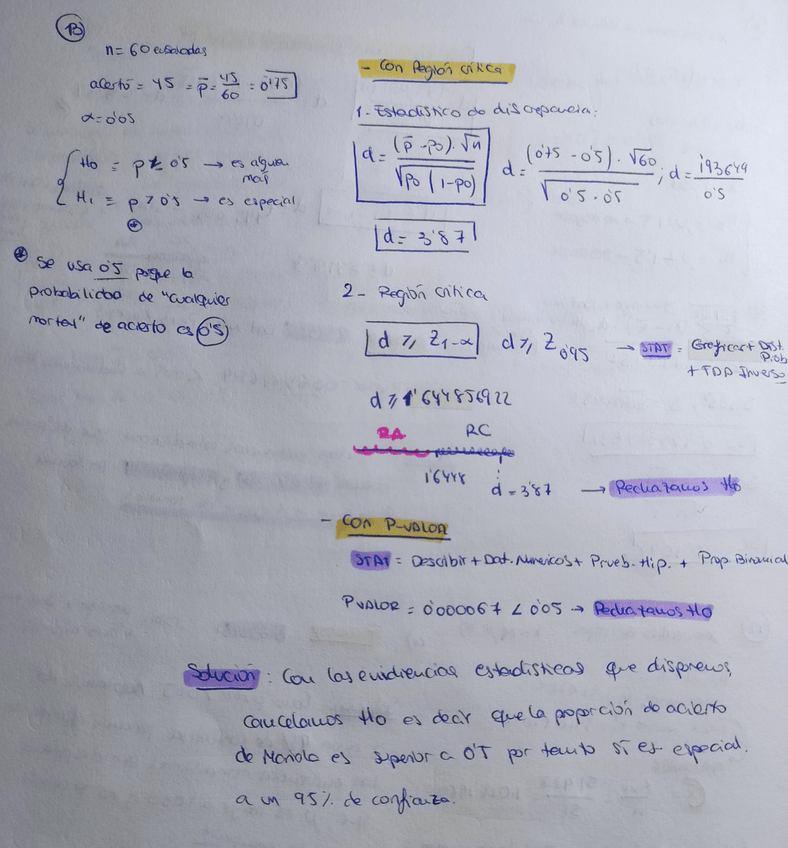 13)
n = 60 ensaladas
acertó = 45 = p̄ = 45/60 = 0'75
α = 0'05
H0 ≡ p ≤ 0'5 → es alguien más
H1 ≡ p > 0'5 → es especial
* Se usa 0'5 porque la
probabilidad de "cualquier
mortal" de acierto es 0'5
- Con Región crítica
1. Estadístico de discrepancia:
d = (p̄ - p0) · √n / √p0 (1-p0) d = (0'75 - 0'5) · √60 / √0'5 · 0'5 ; d = 1'93649 / 0'5
d = 3'87
2- Región crítica
d ≥ Z1-α d ≥ Z0'95 → STAT = Graficar + Dist. Prob
+ TDP Inverso
d ≥ 1'644856922
RA RC
1'6448 d = 3'87 → Rechazamos H0
- CON P-VALOR
STAT = Describir + Dat. Numéricos + Prueb. Hip. + Prop. Binomial
P VALOR = 0'000067 < 0'05 → Rechazamos H0
Solución: Con las evidiencias estadísticas que disponemos,
cancelamos H0 es decir que la proporción de acierto
de Manola es superior a 0'5 por tanto sí es especial.
a un 95% de confianza.